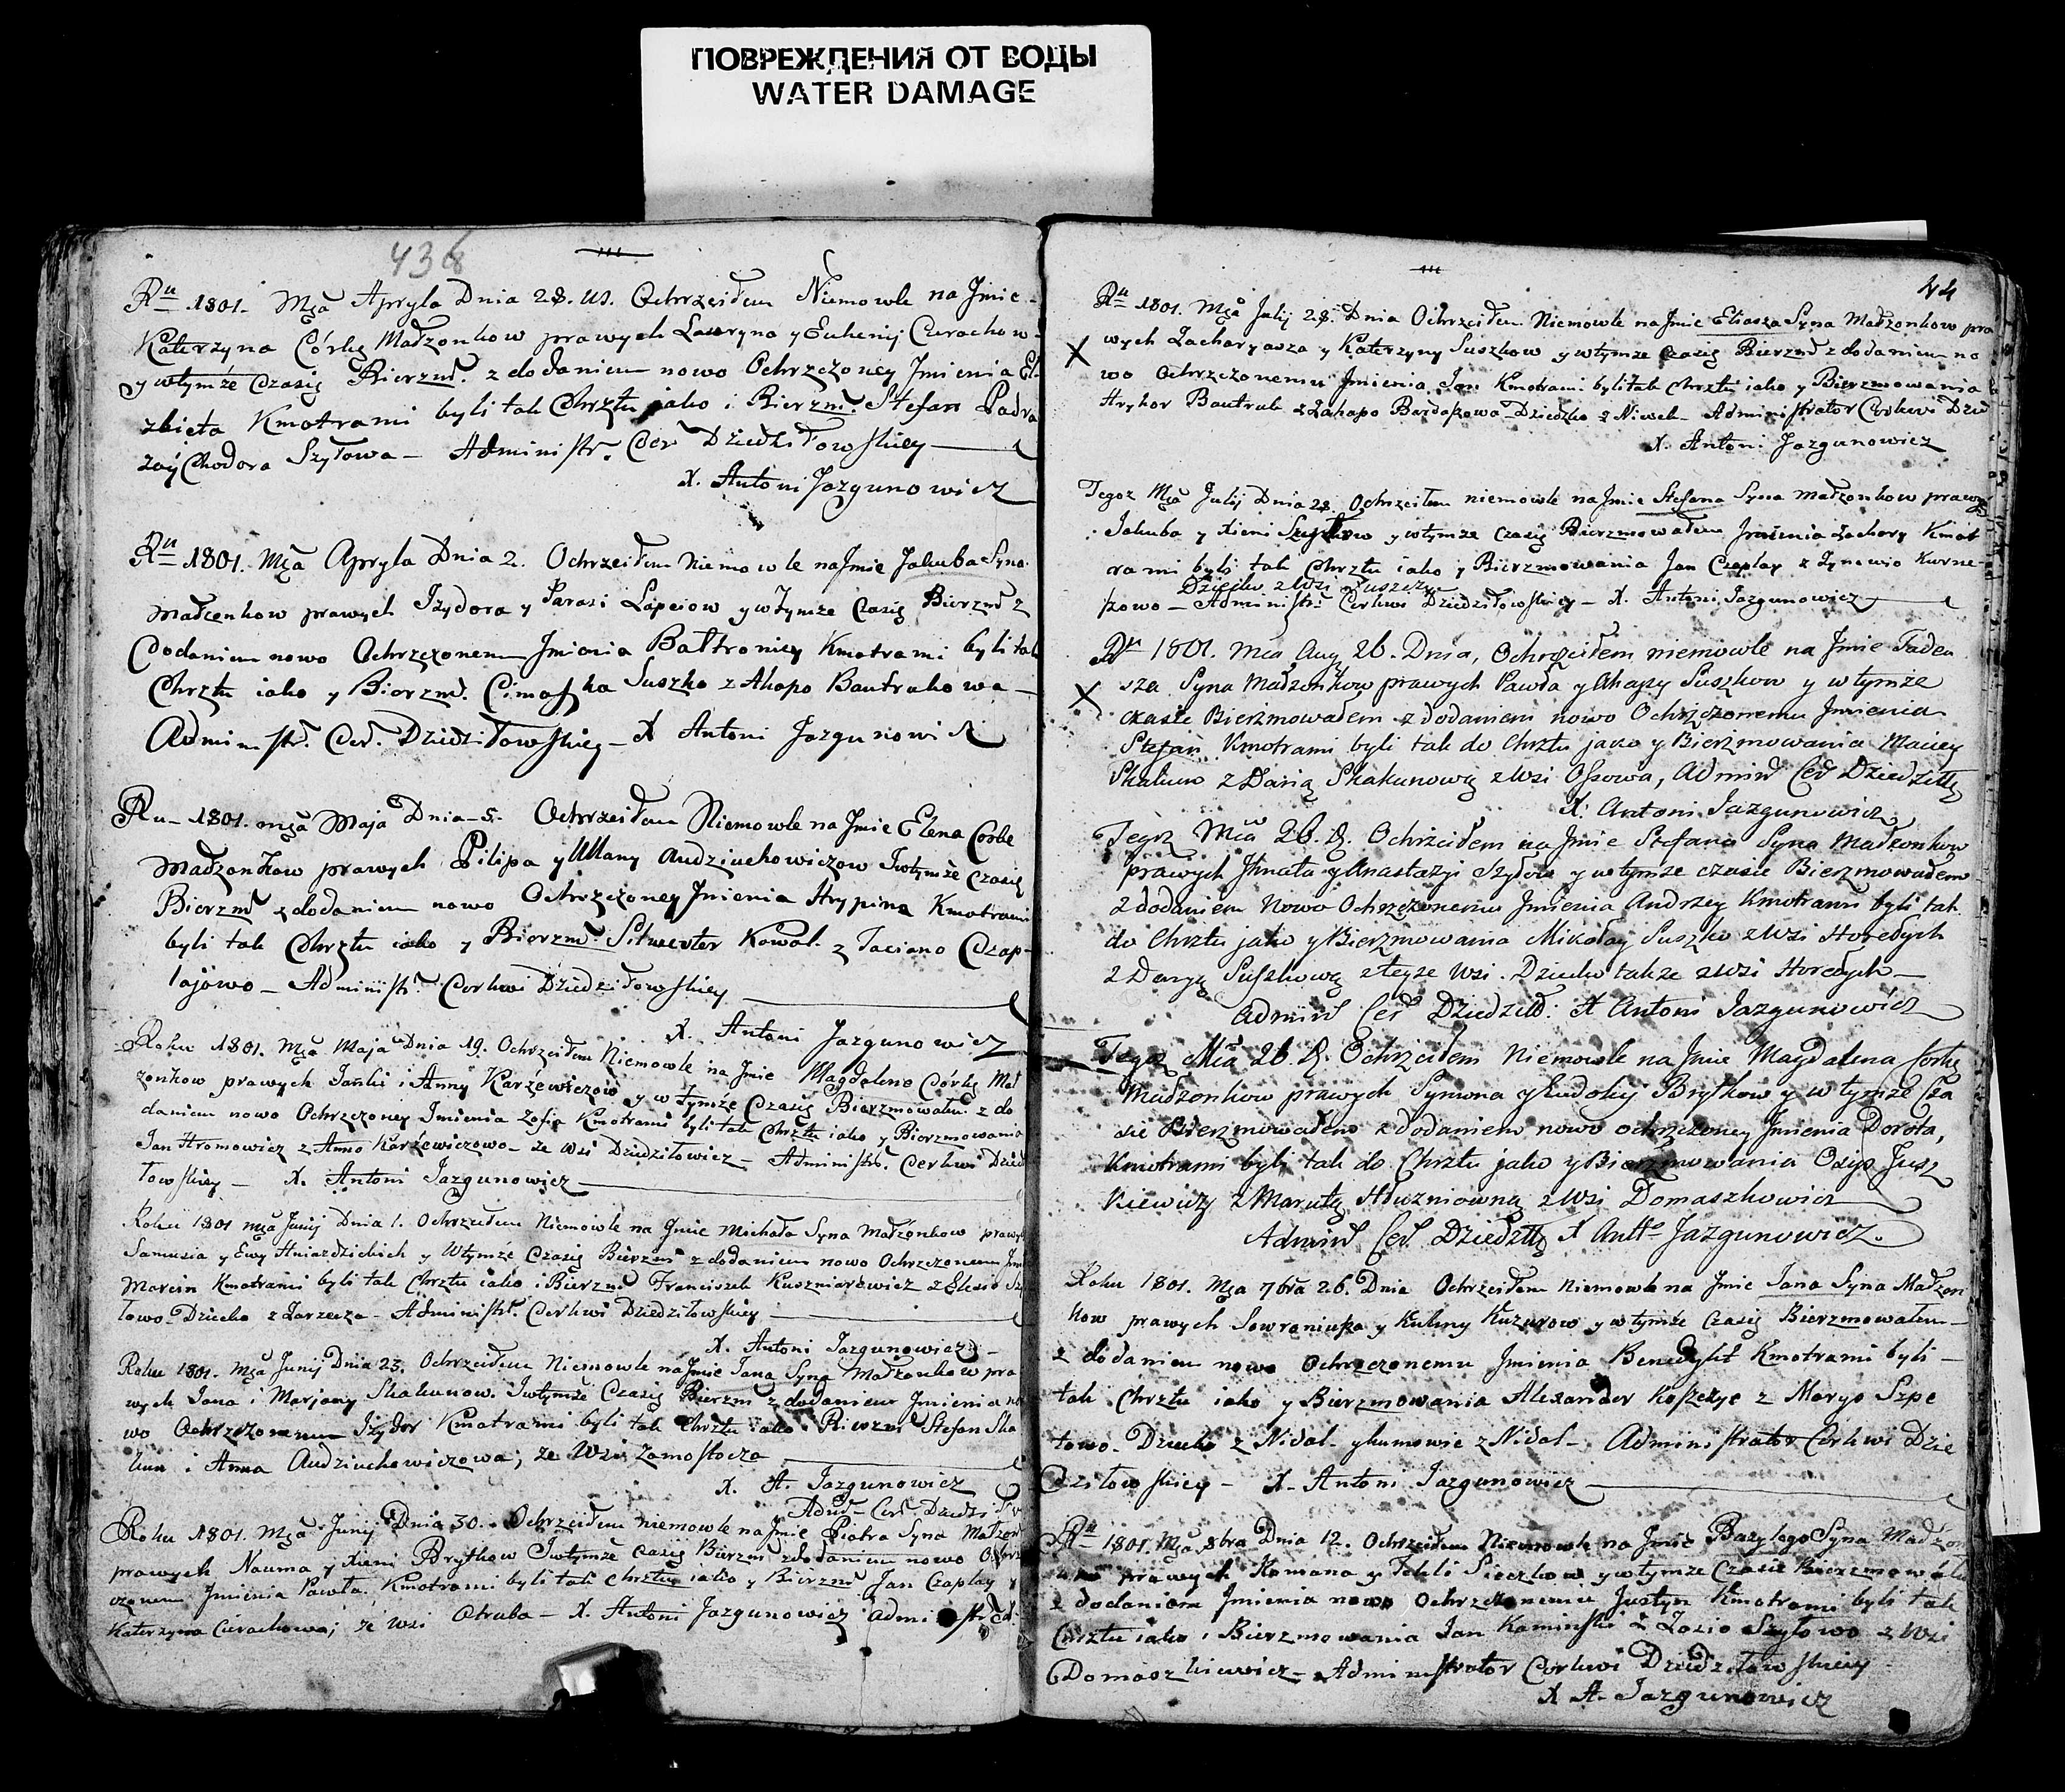 ПОВРЕЖДЕНИЯ ОТ ВОДЫ
WATER DAMAGE
436
Ru 1801. Mca Apryla Dnia 28. Ochrzciłem Niemowle na Jmie
Katerzyna Córkę Małżonkow prawych Lawryna y Euhenij Curachow
y wtymże Czasię Bierzm. z dodaniem nowo Ochrzczoney Jmienia El-
zbieta Kmotrami byli tak Chrztu jako i Bierzm. Stefan
y Chodora Szyłowa – Administr. Cer Dziedziłowskiey
X. Antoni Jazgunowicz
Ru 1801. Mca Apryla Dnia 2. Ochrzciłem Niemowle na Jmie Jakuba Syna
Małzenkow prawych Jzydora y Parasi Łapciow y wtymze Czasię Bierzm z
Dodaniem nowo Ochrzczonem Jmienia Bałtromiey Kmotrami byli tak
Chrztu iako y Bierzm. Cimoszka Suszko z Ahapo Bautrukowa –
Administr. Cer. Dziedziłowskiey – X Antoni Jazgunowicz
Ru – 1801. mca Maja Dnia – 5. Ochrzciłem Niemowle na Jmie Elena Corke
Małżonkow prawych Pilipa y Ullany Audziuchowiczow Jwtymże Czasię
Bierzm z dodaniem nowo Ochrzczoney Jmienia Hrypina Kmotrami
byli tak Chrztu iako y Bierzm. Silwester Kowal z Taciano Czap-
lajowo – Administr. Cerkwi Dziedziłowskiey
X. Antoni Jazgunowicz
Roku 1801. Mca Maja Dnia 19. Ochrzciłem Niemowle na Jmie Magdalene Córkę Mał
zonkow prawych Janki i Anny Karżewiczow y wtymże Czasię Bierzmowałem z do
daniem nowo Ochrzczoney Jmienia Zofia Kmotrami byli tak Chrztu iako y Bierzmowania
Jan Hromowicz z Anno Karżewiczowo – ze Wsi Dziedziłowicz – Administr. Cerkwi Dzied
łowskiey – X. Antoni Jazgunowicz
Roku 1801 mca Junij Dnia 1. Ochrzciłem Niemowle na Jmie Michała Syna Małżonkow prawych
Samusia y Ewy Hniazdzickich y Wtymże Czasię Bierzm z dodaniem nowo Ochrzczonemu Jm
Marcin Kmotrami byli tak Chrztu iako i Bierzm Franciszek Kuszniarewicz z
łowo – Dziecko z Zarzecza – Administr. Cerkwi Dziedziłowskiey
X. Antoni Jazgunowicz –
Roku 1801. Mca Junij Dnia 23. Ochrzciłem Niemowle na Jmie Jana Syna Małżonkow pra
wych Jana i Marjany Skakunow. Jwtymże Czasię Bierzm z dodaniem Jmienia no
wo Ochrzczonemu Jzydor Kmotrami byli tak Chrztu iako i Bierzm Stefan Ska
kun i Anna Audziuchowiczowa; ze Wsi Zamostocza
X. A. Jazgunowicz
Adm – Cer Dziedził
Roku 1801. Mca Junij Dnia 30. Ochrzciłem niemowle na Jmie Piotra Syna Małżon
prawych Nauma y Xieni Brytkow Jwtymże Czasię Bierzm z dodaniem nowo Ochrz
czonem Jmienia Pawła. Kmotrami byli tak chrztu iako y Bierzm Jan Czaplay y
Katerzyna Curachowa; ze wsi Otruba – X. Antoni Jazgunowicz Admi
44
Ru 1801. Mca Julij 28. Dnia Ochrzciłem Niemowle na Jmie Eliasza Syna Małżonkow pra
X wych Zacharyasza y Katerzyny Suszkow y wtymże Czasię Bierzm z dodaniem no
wo Ochrzczonemu Jmienia Jan Kmotrami byli tak Chrztu iako y Bierzmowania
Hryhor Bautruk z Ahapo Dziecko z Niwek – Administrator Cerkwi Dzied
X. Antoni Jazgunowicz
Tegoz Mca Julij Dnia 28. Ochrzciłem niemowle na Jmie Stefana Syna małżonkow prawych
Jakuba y Xieni y wtymże Czasię Bierzmowałem Jmienia Zachary Kmot
rami byli tak Chrztu iako y Bierzmowania Jan Czaplay z Zynowio Kurne-
Dziecko z Wsi
szowo – Administr. Cerkwi Dziedziłowskiey – X. Antoni Jazgunowicz
Ru 1801. Mca Aug 26. Dnia, Ochrzciłem niemowle na Jmie Tadeu
X sza Syna Małżonkow prawych Pawła y Ahapy Suszkow y w tymże
czasie Bierzmowałem z dodaniem nowo Ochrzczonemu Jmienia
Stefan Kmotrami byli tak do Chrztu jako y Bierzmowania Maciey
Skakun z Darią Skakunową z Wsi Osowa, Admin Cer Dziedziłł
X. Antoni Jazgunowicz
Tegoz Mca 26. d. Ochrzciłem na Jmie Stefana Syna Małżonkow
prawych Jhnata y Anastazyi Szyłow y wtymże czasie Bierzmowałem
z dodaniem Nowo Ochrzczonemu Jmienia Andrzey Kmotrami byli tak
do Chrztu jako y Bierzmowania Mikołay Suszko z Wsi Horedych
z Daryą Suszkową z teyże Wsi. Dziecko takze z Wsi Horedych –
Admin Cer Dziedził: X Antoni Jazgunowicz
Tegoz Mca 26 d. Ochrzciłem Niemowle na Jmie Magdalena Corkę
Małżonkow prawych Symona y Eudokij Brytkow y w tymże Cza
sie Bierzmowałem z dodaniem nowo ochrzczoney Jmienia Dorota,
Kmotrami byli tak do Chrztu jako y Bierzmowania Osip Jusz
kiewicz z Marutą Hłuzniowną z Wsi Domaszkowicz
Admin Cer Dziedziłł X Antt Jazgunowicz.
Roku 1801. Mca 7bra 26. Dnia Ochrzciłem Niemowle na Jmie Jana Syna Małżon
kow prawych y Kuliny Kuzurow y wtymże Czasię Bierzmowałem –
z dodaniem nowo Ochrzczonemu Jmienia Benedykt Kmotrami byli –
tak Chrztu iako y Bierzmowania Alexander z Maryo Szpe
towo – Dziecko z Nidal y kumowie z Nidal – Administrator Cerkwi Dzie
dziłowskiey – X. Antoni Jazgunowicz
Ru 1801. Mca 8bra Dnia 12. Ochrzciłem Niemowle na Jmie Bazylego Syna Małżon
prawych Romana y Tekli y wtymże Czasie Bierzmowałem
z dodaniem Jmienia nowo Ochrzczonemu Justyn Kmotrami byli tak
Chrztu iako i Bierzmowania Jan Kaminski z Zosio Szyłowo z Wsi
Domaszkiewicz – Administrator Cerkwi Dziedziłowskiey
X A. Jazgunowicz